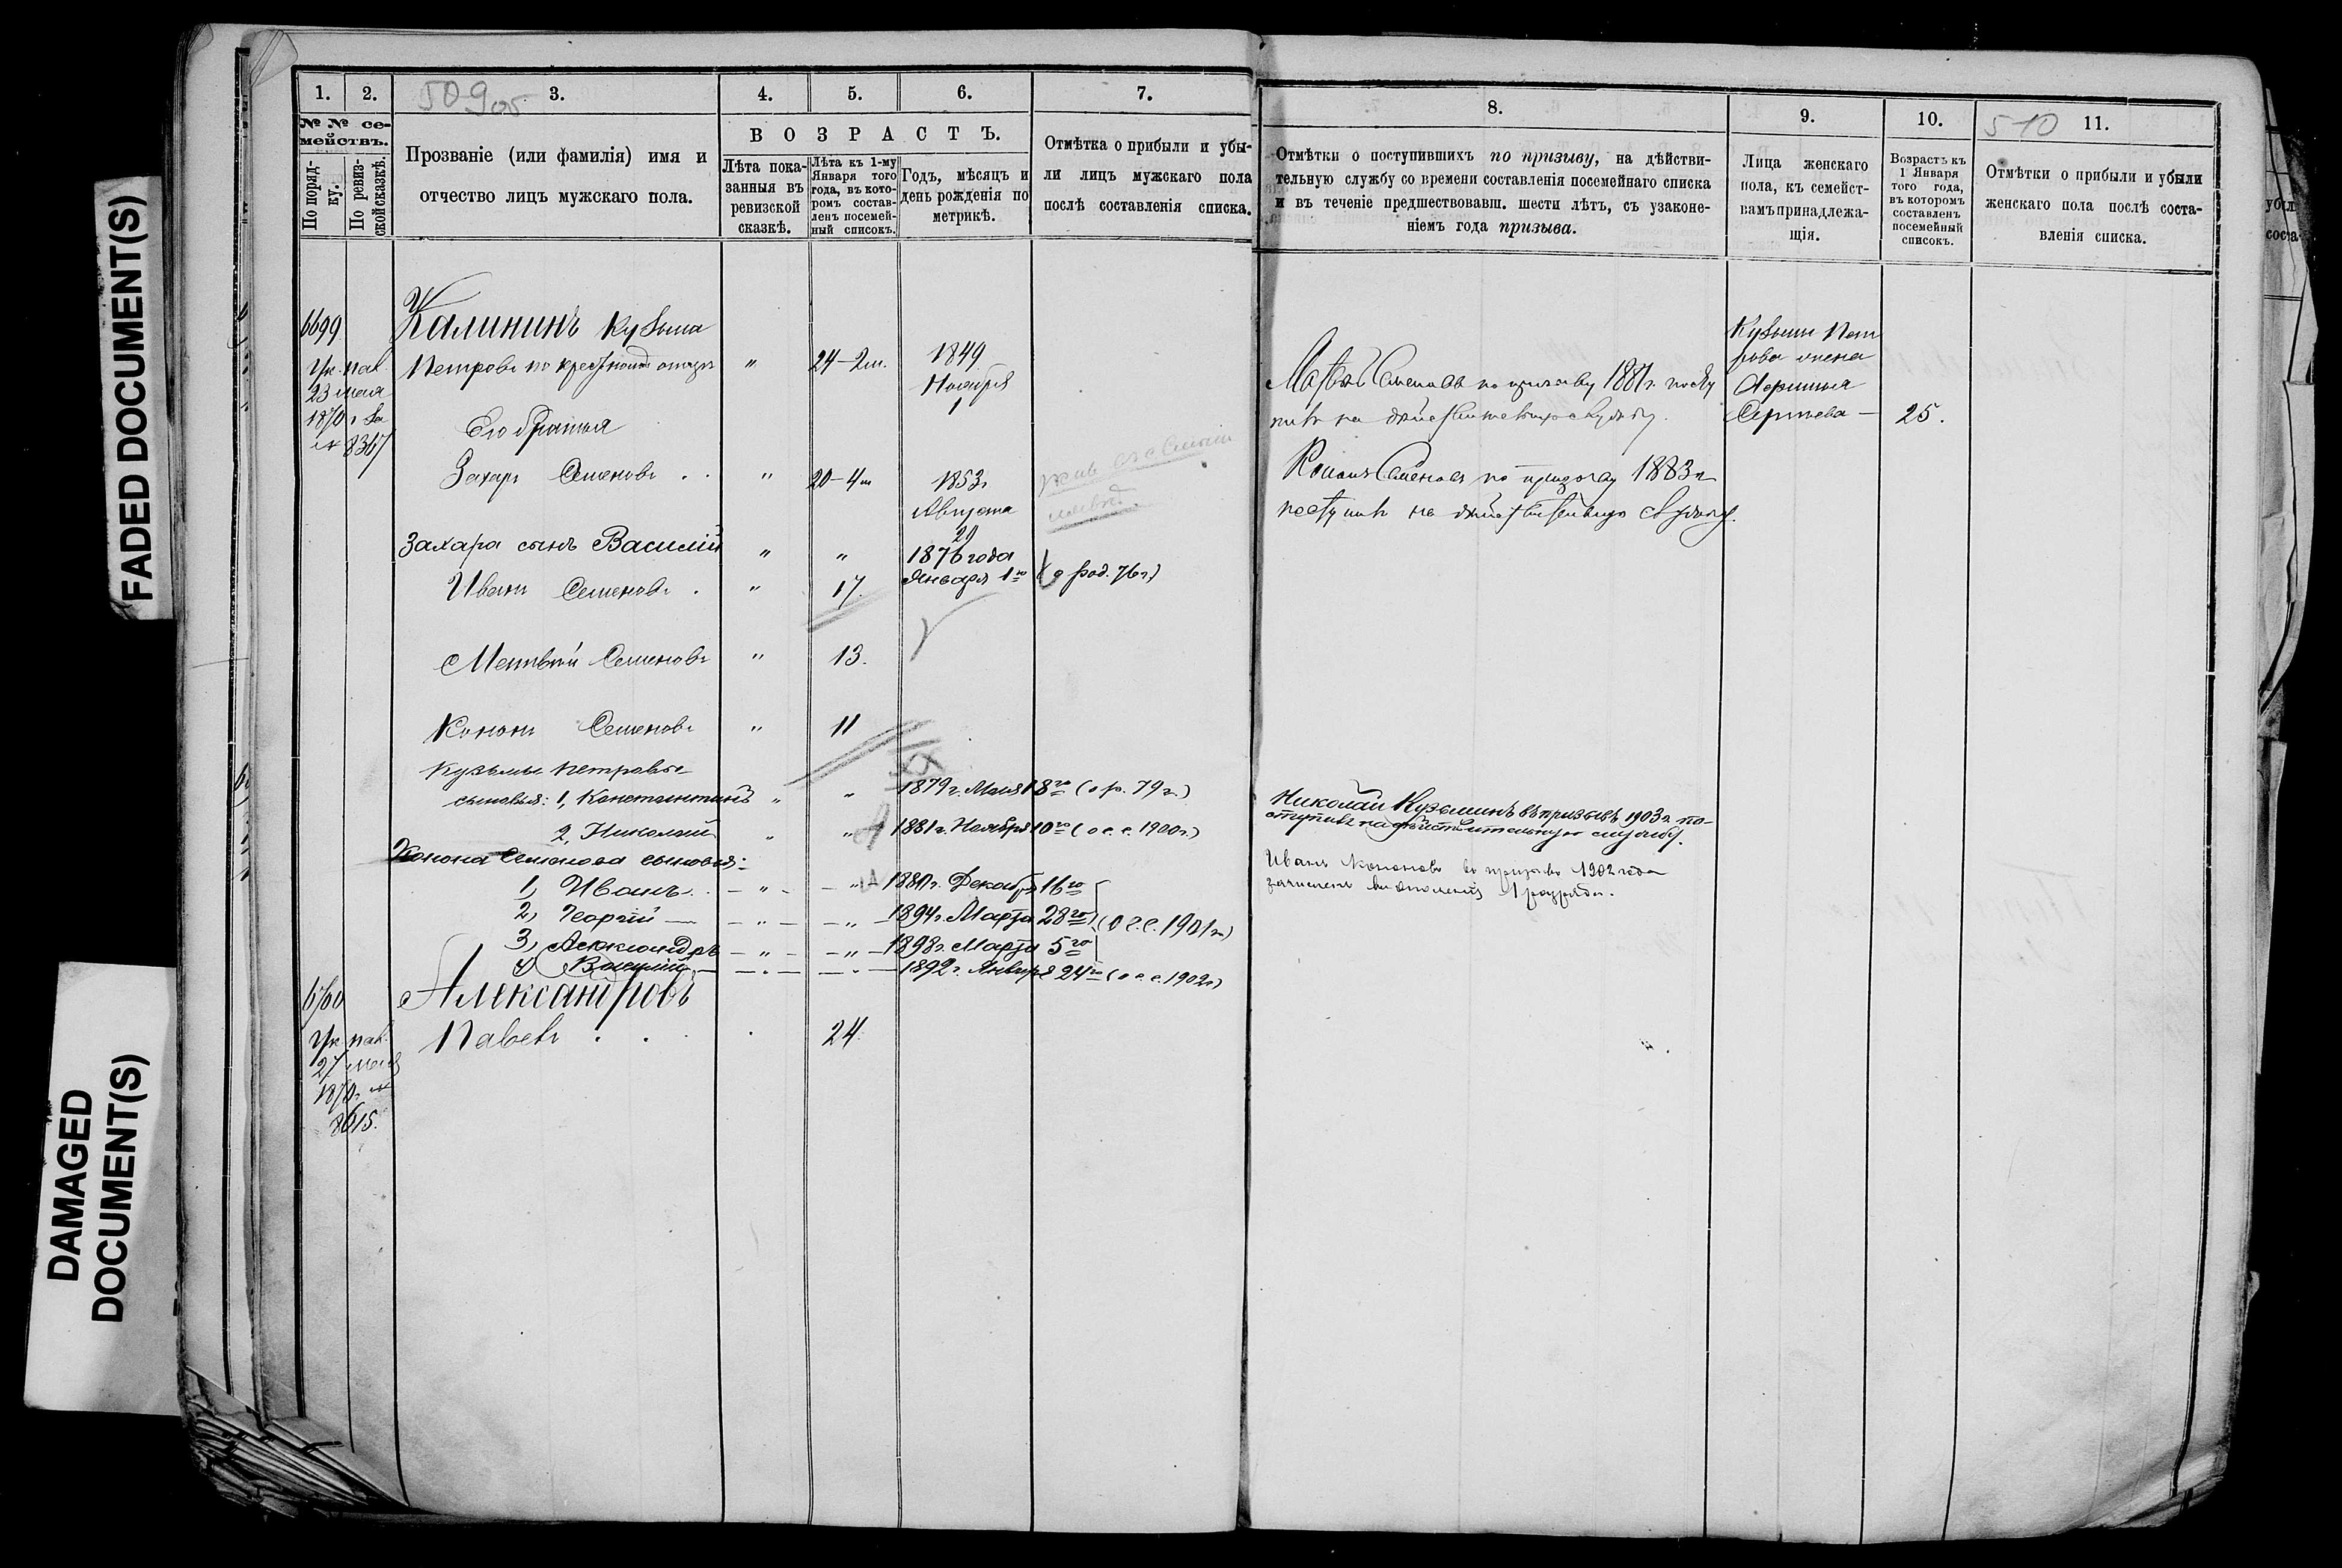 FADED DOCUMENT(S)
DAMAGED
DOCUMENT(S)
509 об
510
1. 2. 3. 4. 5. 6. 7.
№ № се-
мействъ.
По поряд-
ку.
По ревиз-
ской сказкѣ.
Прозваніе (или фамилія) имя и
отчество лицъ мужскаго пола.
ВОЗРАСТЪ.
Лѣта пока-
занныя въ
ревизской
сказкѣ.
Лѣта къ 1-му
Января того
года, въ кото-
ромъ состав-
ленъ посемей-
ный списокъ.
Годъ, мѣсяцъ и
день рожденія по
метрикѣ.
Отмѣтка о прибыли и убы-
ли лицъ мужскаго пола
послѣ составленія списка.
6699 Калининъ Кузьма
Ук. пал. Петровъ по крестному отцу " 24-2м. 1849
23 мая Ноября
1870 г. за 1
№ 8367 Его братья
Захаръ Семеновъ " 20-4м 1853г.
Августа
Захара сынъ Василій " " 1876 года
Января 1го (о род. 76г.)
Иванъ Семеновъ " 17.
Матвѣй Семеновъ " 13.
Кононъ Семеновъ " 11
Кузьмы Петрова
сыновья: 1, Константинъ " " 1879 г. Мая 18го (о р. 79 г.)
2, Николай " " 1881 г. Ноября 10го (о с. с. 1900г.)
Конона Семенова сыновья:
1, Иванъ " " 1880 г. Декабря 16го
2, Георгій " " 1894 г. Марта 28го (о с. с. 1901г.)
3, Александръ " " 1898 г. Марта 5го
4, Василій 1892 г. Января 24го (о с. с. 1902г)
6700 Александровъ
Ук. пал. Павелъ 24
27 мая
1870 г. №
8615.
8. 9. 10. 11.
Отмѣтки о поступившихъ по призыву, на дѣйстви-
тельную службу со времени составленія посемейнаго списка
и въ теченіе предшествовавш. шести лѣтъ, съ узаконе-
ніемъ года призыва.
Лица женскаго
пола, къ семейст-
вамъ принадлежа-
щія.
Возрастъ къ
1 Января
того года,
въ которомъ
составленъ
посемейный
списокъ.
Отмѣтки о прибыли и убыли
женскаго пола послѣ соста-
вленія списка.
Матвѣй Семеновъ по призыву 1881 г. посту
пилъ на дѣйствительную службу.
Кононъ Семеновъ по призыву 1883 г
поступилъ на дѣйствительную службу.
Николай Кузьминъ въ призывъ 1903 г. по-
ступилъ на дѣйствительную службу.
Иванъ Кононовъ въ призывъ 1902 года
зачисленъ въ ополченіе 1 разряда.
Кузьмы Пет
рова жена
Сергеева — 25.